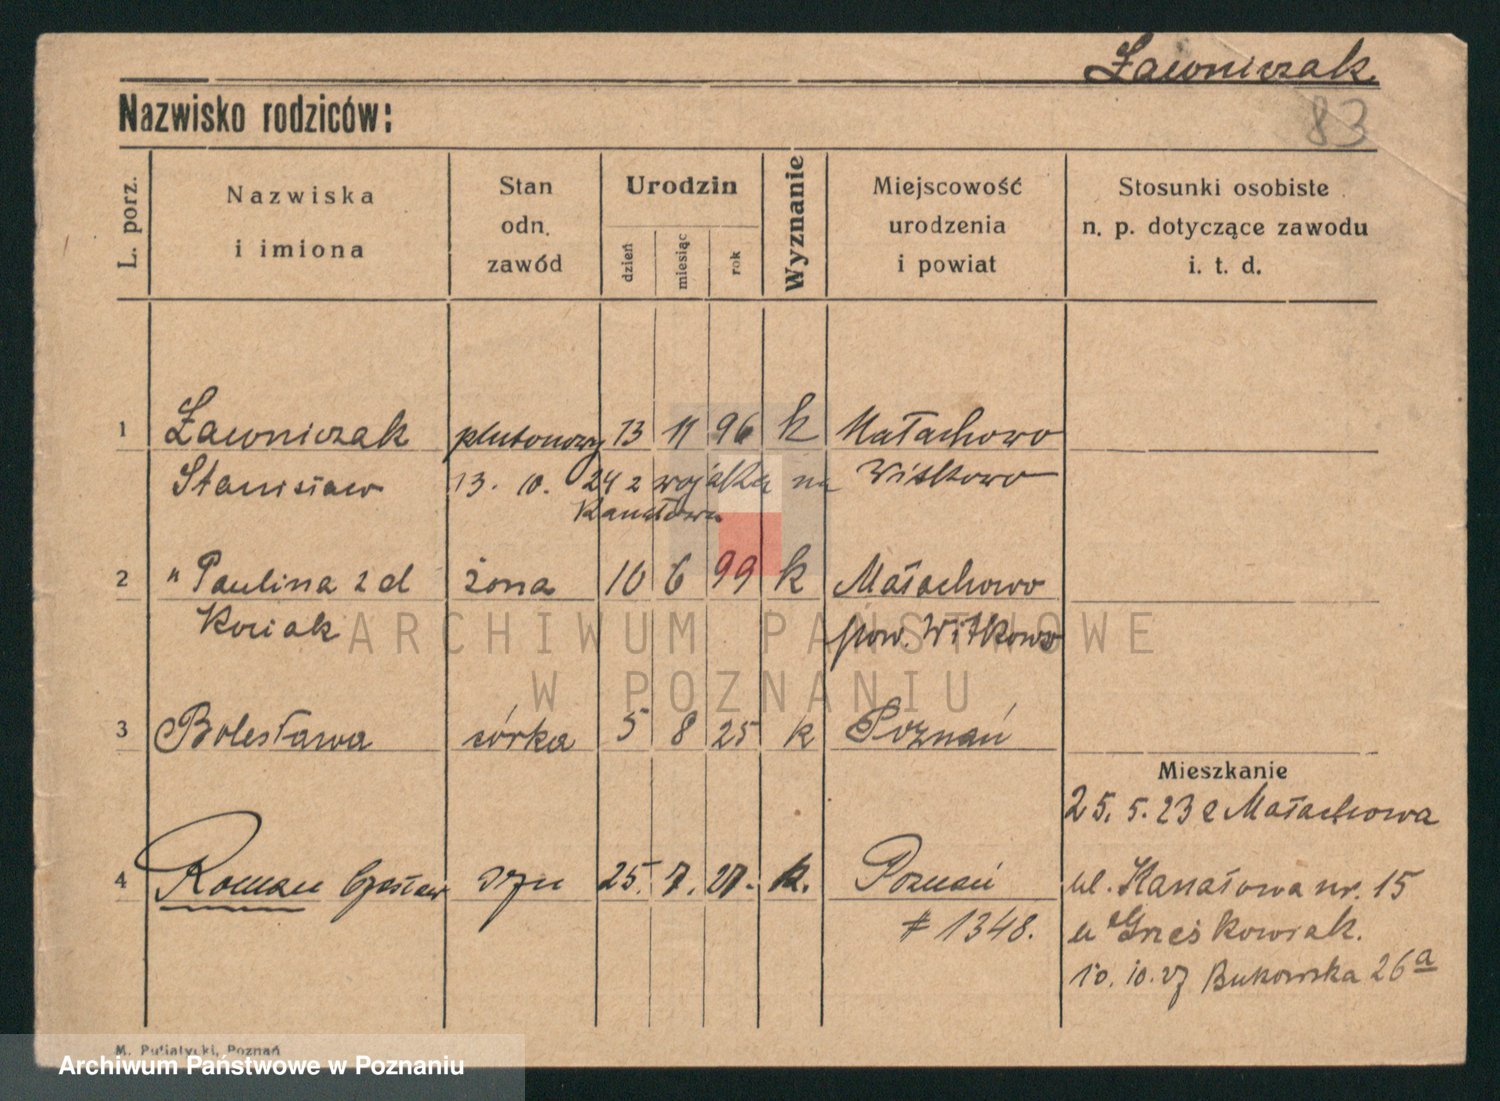 Ławniczak
83
Nazwisko rodziców:
L. porz.
Nazwiska
i imiona
Stan
odn.
zawód
Urodzin
dzień
miesiąc
rok
Wyznanie
Miejscowość
urodzenia
i powiat
Stosunki osobiste
n. p. dotyczące zawodu
i. t. d.
1 Ławniczak plutonowy 13 11 96 k Małachowo
Stanisław 13. 10. 24 z wojska na Witkowo
Kanałowa
2 " Paulina z d żona 10 6 99 k Małachowo
Kosiak pow. Witkowo
ARCHIWUM PAŃSTWOWE
W POZNANIU
3 Bolesława córka 5 8 25 k Poznań
Mieszkanie
25. 5. 23 z Małachowa
4 Roman Czesław syn 25. 7. 27. k. Poznań
ul. Kanałowa nr. 15
# 1348.
u Grześkowiak.
10. 10. 27 Bukowska 26a
M. Putiatycki, Poznań
Archiwum Państwowe w Poznaniu